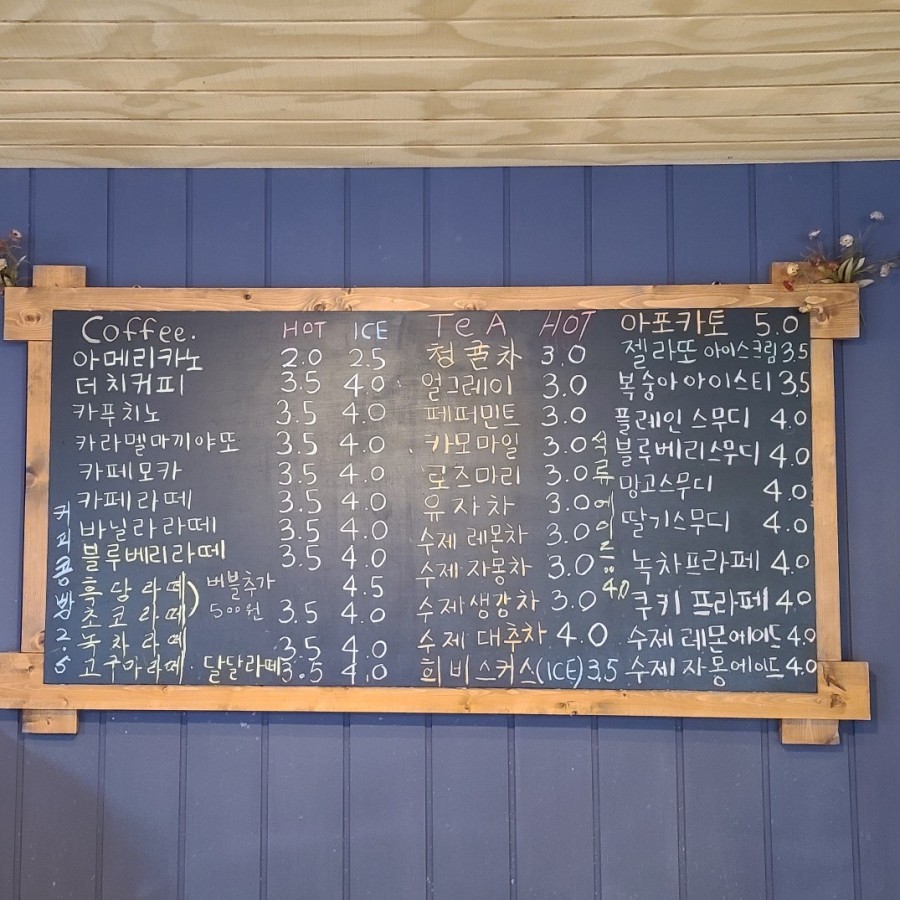 Coffee. HOT ICE
아메리카노 2.0 2.5
더치커피 3.5 4.0
카푸치노 3.5 4.0
카라멜마끼야또 3.5 4.0
카페모카 3.5 4.0
카페라떼 3.5 4.0
바닐라라떼 3.5 4.0
블루베리라떼 3.5 4.0
흑당라떼 버블추가 500원 4.5
초코라떼 3.5 4.0
녹차라떼 3.5 4.0
고구마라떼 달달라떼 3.5 4.0
커피콩빵 2.5
TeA HOT
청귤차 3.0
얼그레이 3.0
페퍼민트 3.0
카모마일 3.0
로즈마리 3.0
유자차 3.0
수제 레몬차 3.0
수제 자몽차 3.0
수제생강차 3.0
수제 대추차 4.0
히비스커스(ICE) 3.5
석류에이드 4.0
아포카토 5.0
젤라또 아이스크림 3.5
복숭아아이스티 3.5
플레인스무디 4.0
블루베리스무디 4.0
망고스무디 4.0
딸기스무디 4.0
녹차프라페 4.0
쿠키 프라페 4.0
수제 레몬에이드 4.0
수제 자몽에이드 4.0